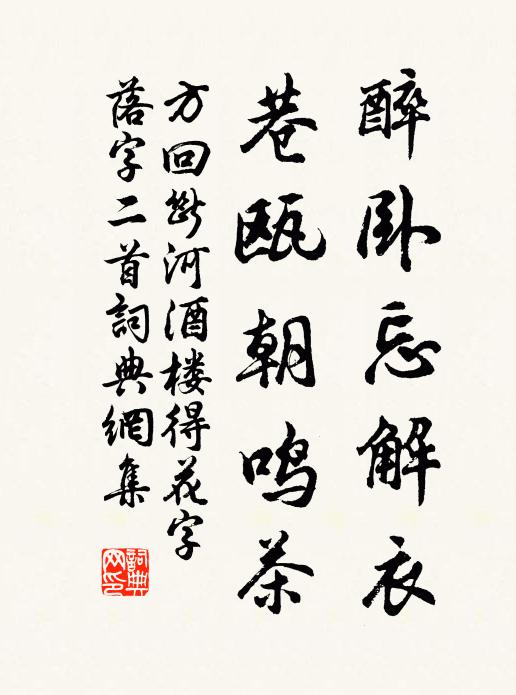 醉卧忘解衣
巷瓯朝鸣茶
方回断河酒楼得花字
落字二首詞典網集
詞典网印